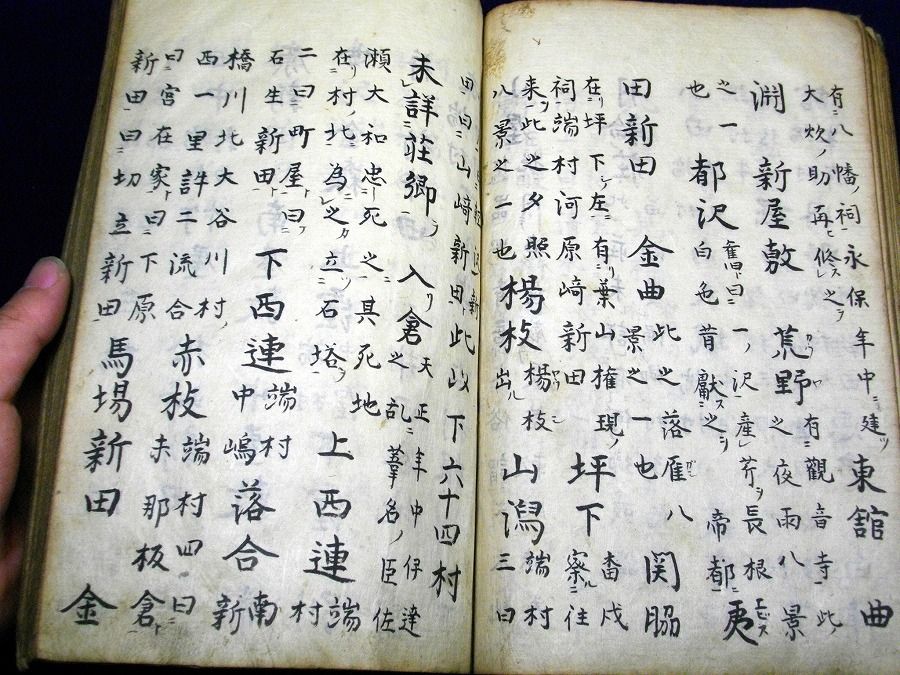 有八幡ノ祠永保年中ニ建ツ大炊ノ助再ヒ修ス之ヲ東舘曲
淵新屋敷蕉野有觀音寺此ノ之夜雨八景
之一也都沢舊曰ニ一ノ沢産ス芹ヲ長根白色昔獻ス之ヲ帝都ニ夷
田新田金曲此之落雁八景之一也関脇
在リ坪下ニ左ニ有リ葉山権現ノ祠端村河原崎新田坪下畨戍寮住
来此之夕照八景之一也楊枝楊枝出ル山潟端村三曰
田曰山崎新田此以下六十四村
未詳荘郷ヲ入倉天正年中伊達之乱ニ葦名ノ臣佐
瀬大和忠死之其死地在リ村北ニ為之立石塔ヲ上西連端村
二曰町屋曰石生新田下西連端村中嶋落合南新
橋川北大谷川村西一里許二流合赤枝端村四曰未那板倉
曰宮在家曰下原新田曰切立新田馬場新田金